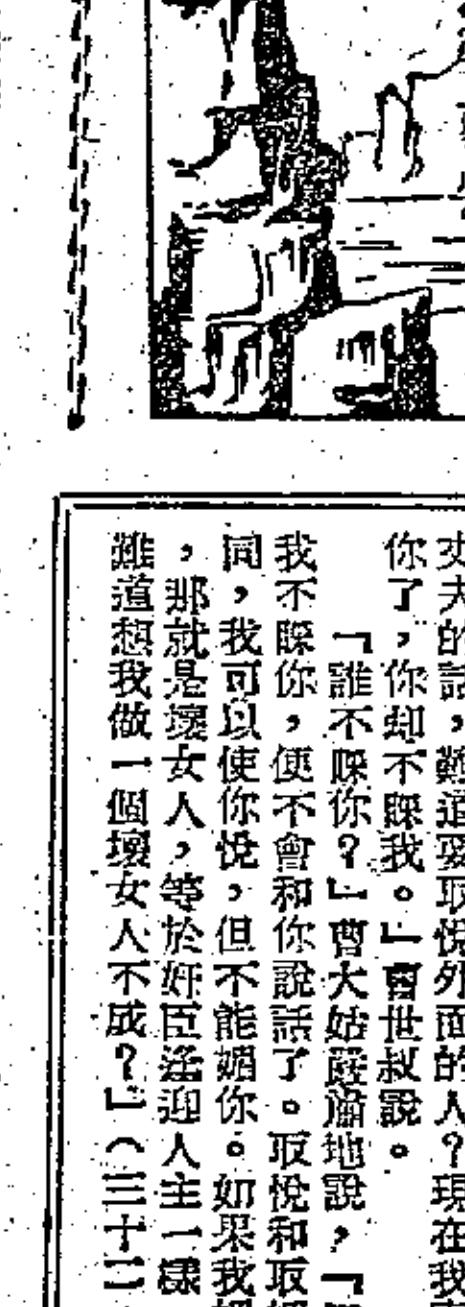 丈夫的話，難道要取悅外面的人？現在我
你了，你却不睬我。」曹世叔說。
「誰不睬你？」曹大姑 地說，「
我不睬你，便不會和你說話了。取悅和取
同，我可以使你悅，但不能媚你。如果我
，那就是壞女人，等於奸臣逢迎人主一樣
難道想我做一個壞女人不成？」（三十二